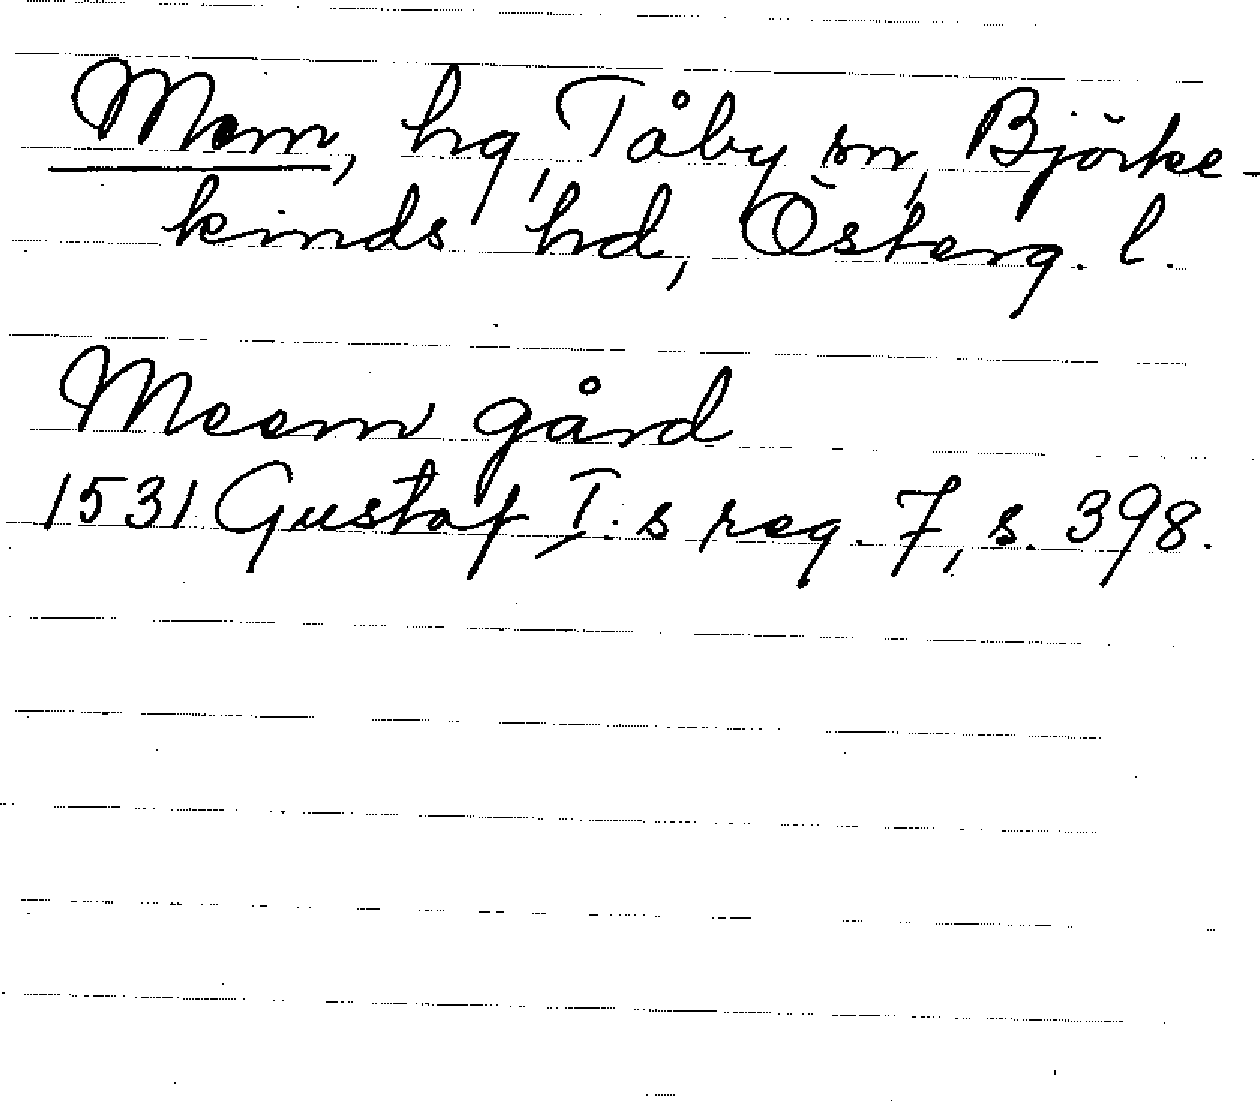 Mem, hg, Tåby sn, Björke-
kinds hd, Österg. l.
Meem gård
1531 Gustaf I:s reg. 7, s. 398.